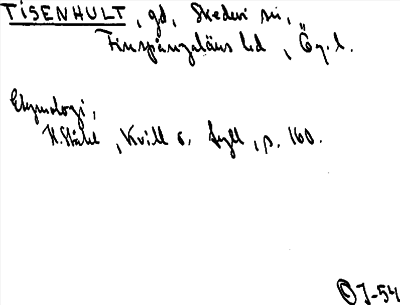 TISENHULT, gd, Skedevi sn,
Finspångaläns hd, Ög. l.
Etymologi,
H. Ståhl, Kvill o. tyll, p. 160.
OJ-54